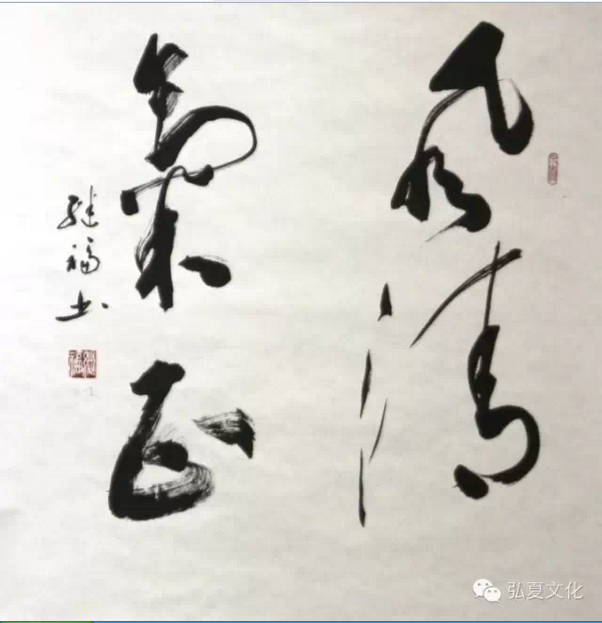 风清
氣正
继福书
弘夏文化